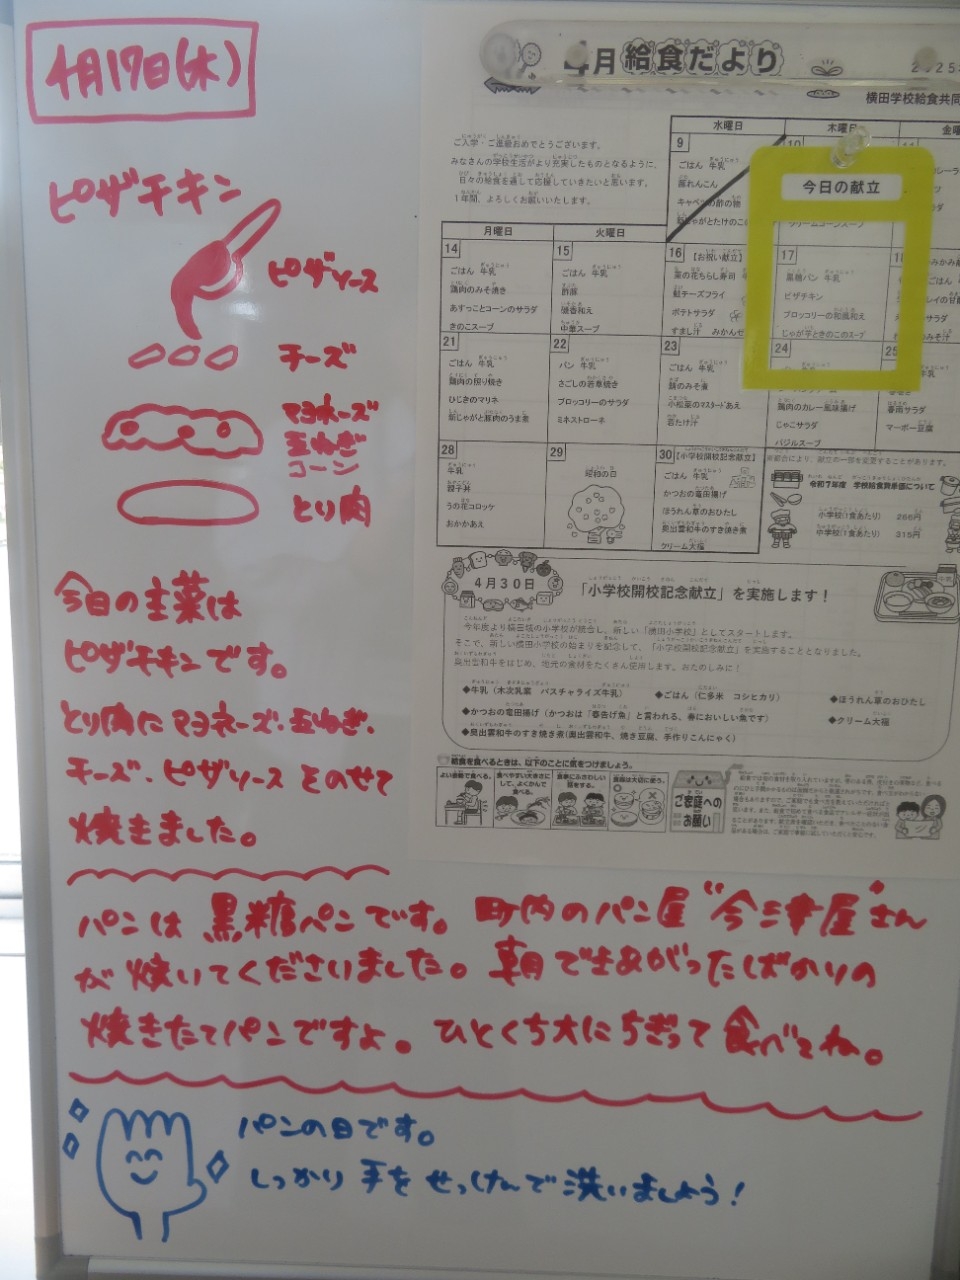 4月17日(木)
ピザチキン
ピザソース
チーズ
マヨネーズ
玉ねぎ
コーン
とり肉
今日の主菜は
ピザチキンです。
とり肉にマヨネーズ、玉ねぎ、
チーズ、ピザソースをのせて
焼きました。
パンは黒糖パンです。町内のパン屋"今津屋"さん
が焼いてくださいました。朝できあがったばかりの
焼きたてパンですよ。ひとくち大にちぎって食べてね。
パンの日です。
しっかり手をせっけんで洗いましょう!
4月 給食だより
横田学校給食共同
ご入学・ご進級おめでとうございます。
みなさんの学校生活がより充実したものとなるように、
日々の給食を通して応援していきたいと思います。
1年間、よろしくお願いいたします。
水曜日
木曜日
9
ごはん 牛乳
キャベツの酢の物
今日の献立
月曜日
火曜日
14
ごはん 牛乳
鶏肉のみそ焼き
あすっことコーンのサラダ
きのこスープ
15
ごはん 牛乳
酢豚
磯香和え
中華スープ
16 【お祝い献立】
菜の花ちらし寿司
鮭チーズフライ
ポテトサラダ
すまし汁
17
黒糖パン 牛乳
ピザチキン
ブロッコリーの和風和え
じゃが芋ときのこのスープ
21
ごはん 牛乳
鶏肉の照り焼き
ひじきのマリネ
新じゃがと豚肉のうま煮
22
パン 牛乳
さごしの若草焼き
ブロッコリーのサラダ
ミネストローネ
23
ごはん 牛乳
鯖のみそ煮
小松菜のマスタードあえ
若たけ汁
24
鶏肉のカレー風味揚げ
じゃこサラダ
バジルスープ
25
春雨サラダ
マーボー豆腐
28
牛乳
親子丼
うの花コロッケ
おかかあえ
29
昭和の日
30 【小学校開校記念献立】
ごはん 牛乳
かつおの竜田揚げ
ほうれん草のおひたし
奥出雲和牛のすき焼き煮
クリーム大福
献立の一部を変更することがあります。
令和7年度 学校給食費単価について
小学校(1食あたり) 266円
中学校(1食あたり) 315円
4月30日
「小学校開校記念献立」を実施します!
今年度より横田地域の小学校が統合し、新しい「横田小学校」としてスタートします。
そこで、新しい横田小学校の始まりを記念して、「小学校開校記念献立」を実施することとなりました。
奥出雲和牛をはじめ、地元の食材をたくさん使用します。おたのしみに!
◆牛乳(木次乳業 パスチャライズ牛乳)
◆ごはん(仁多米 コシヒカリ)
◆ほうれん草のおひたし
◆かつおの竜田揚げ(かつおは「春告げ魚」と言われる、春においしい魚です)
◆クリーム大福
◆奥出雲和牛のすき焼き煮(奥出雲和牛、焼き豆腐、手作りこんにゃく)
給食を食べるときは、以下のことに気をつけましょう。
よい姿勢で食べる。
食べやすい大きさにして、よくかんで食べる。
食事にふさわしい話をする。
食器は大切に使う。
ご家庭への
お願い